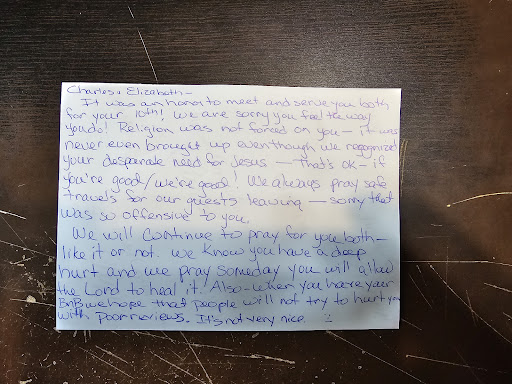 Charles & Elizabeth-
It was an honor to meet and serve you both
for your 10th! We are sorry you feel the way
you do! Religion was not forced on you - it was
never even brought up even though we regognized
your desperate need for Jesus - That's ok - if
you're good/we're good! We always pray safe
travels for our guests leaving - sorry that
was so offensive to you.
We will continue to pray for you both -
like it or not. We know you have a deep
hurt and we pray someday you will allow
the Lord to heal it! Also - when you have your
BnB we hope that people will not try to hurt you
with poor reviews. It's not very nice.